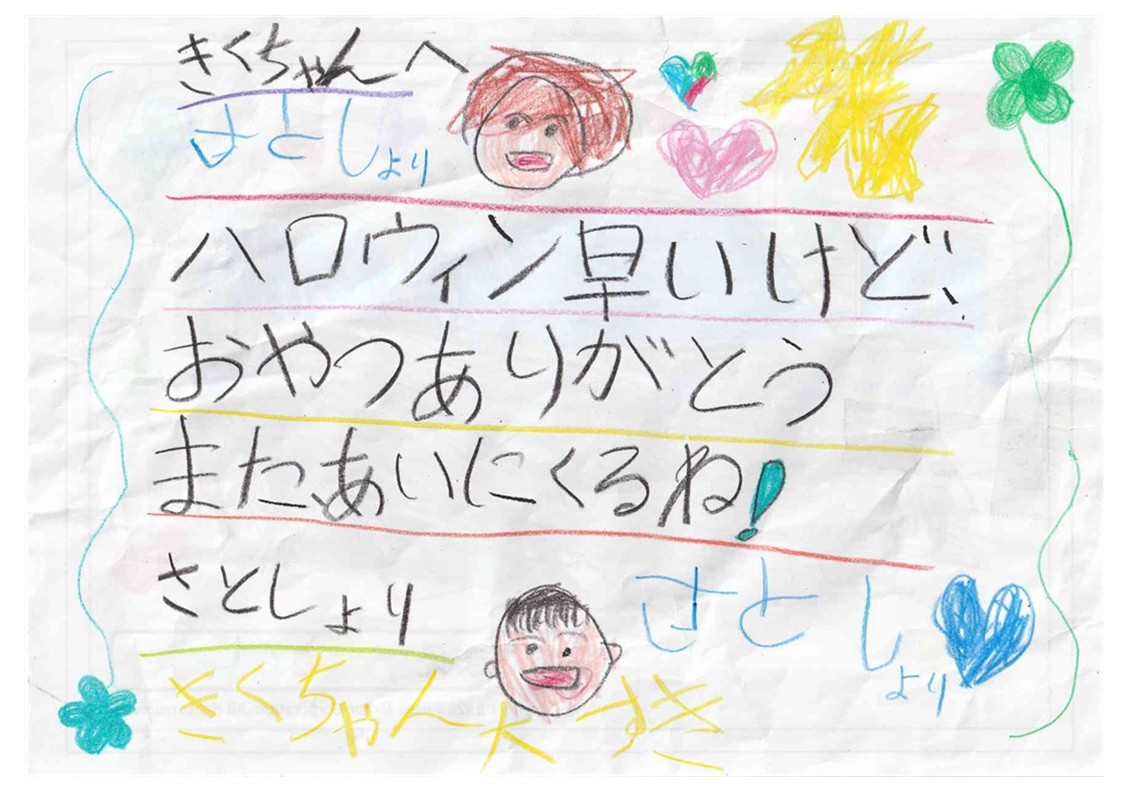 きくちゃんへ
さとしより
ハロウィン早いけど、
おやつありがとう
またあいにくるね!
さとしより
さとしより
きくちゃん大すき